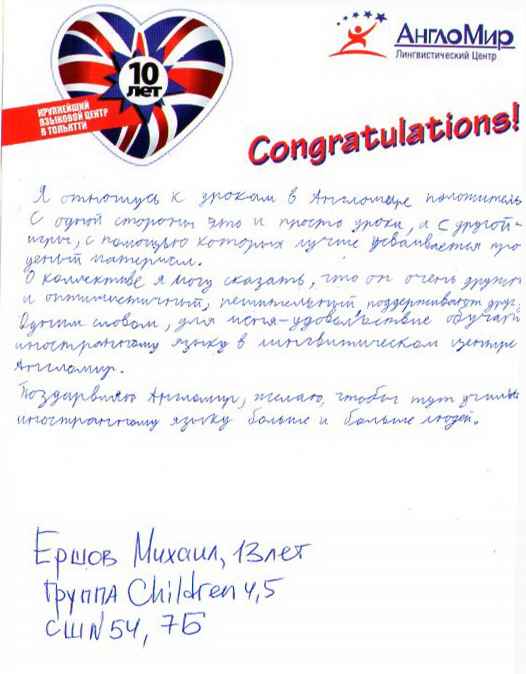 10
ЛЕТ
КРУПНЕЙШИЙ
ЯЗЫКОВОЙ ЦЕНТР
В ТОЛЬЯТТИ
АнглоМир
Лингвистический Центр
Congratulations!
Я отношусь к урокам в Англомире положитель
С одной стороны это и просто уроки, а с другой-
игры, с помощью которых лучше усваивается про
деный материал.
О коллективе я могу сказать, что он очень дружн
и оптимистичный, решительный, поддерживают друг
Одним словом, для меня-удовольствие обучат
иностранному языку в лингвитическом центре
Англомир.
Поздарвляю Англомир, желаю, чтобы тут училис
иностранному языку больше и больше людей.
Ершов Михаил, 13 лет
Группа Children 4,5
СШ№54, 7Б